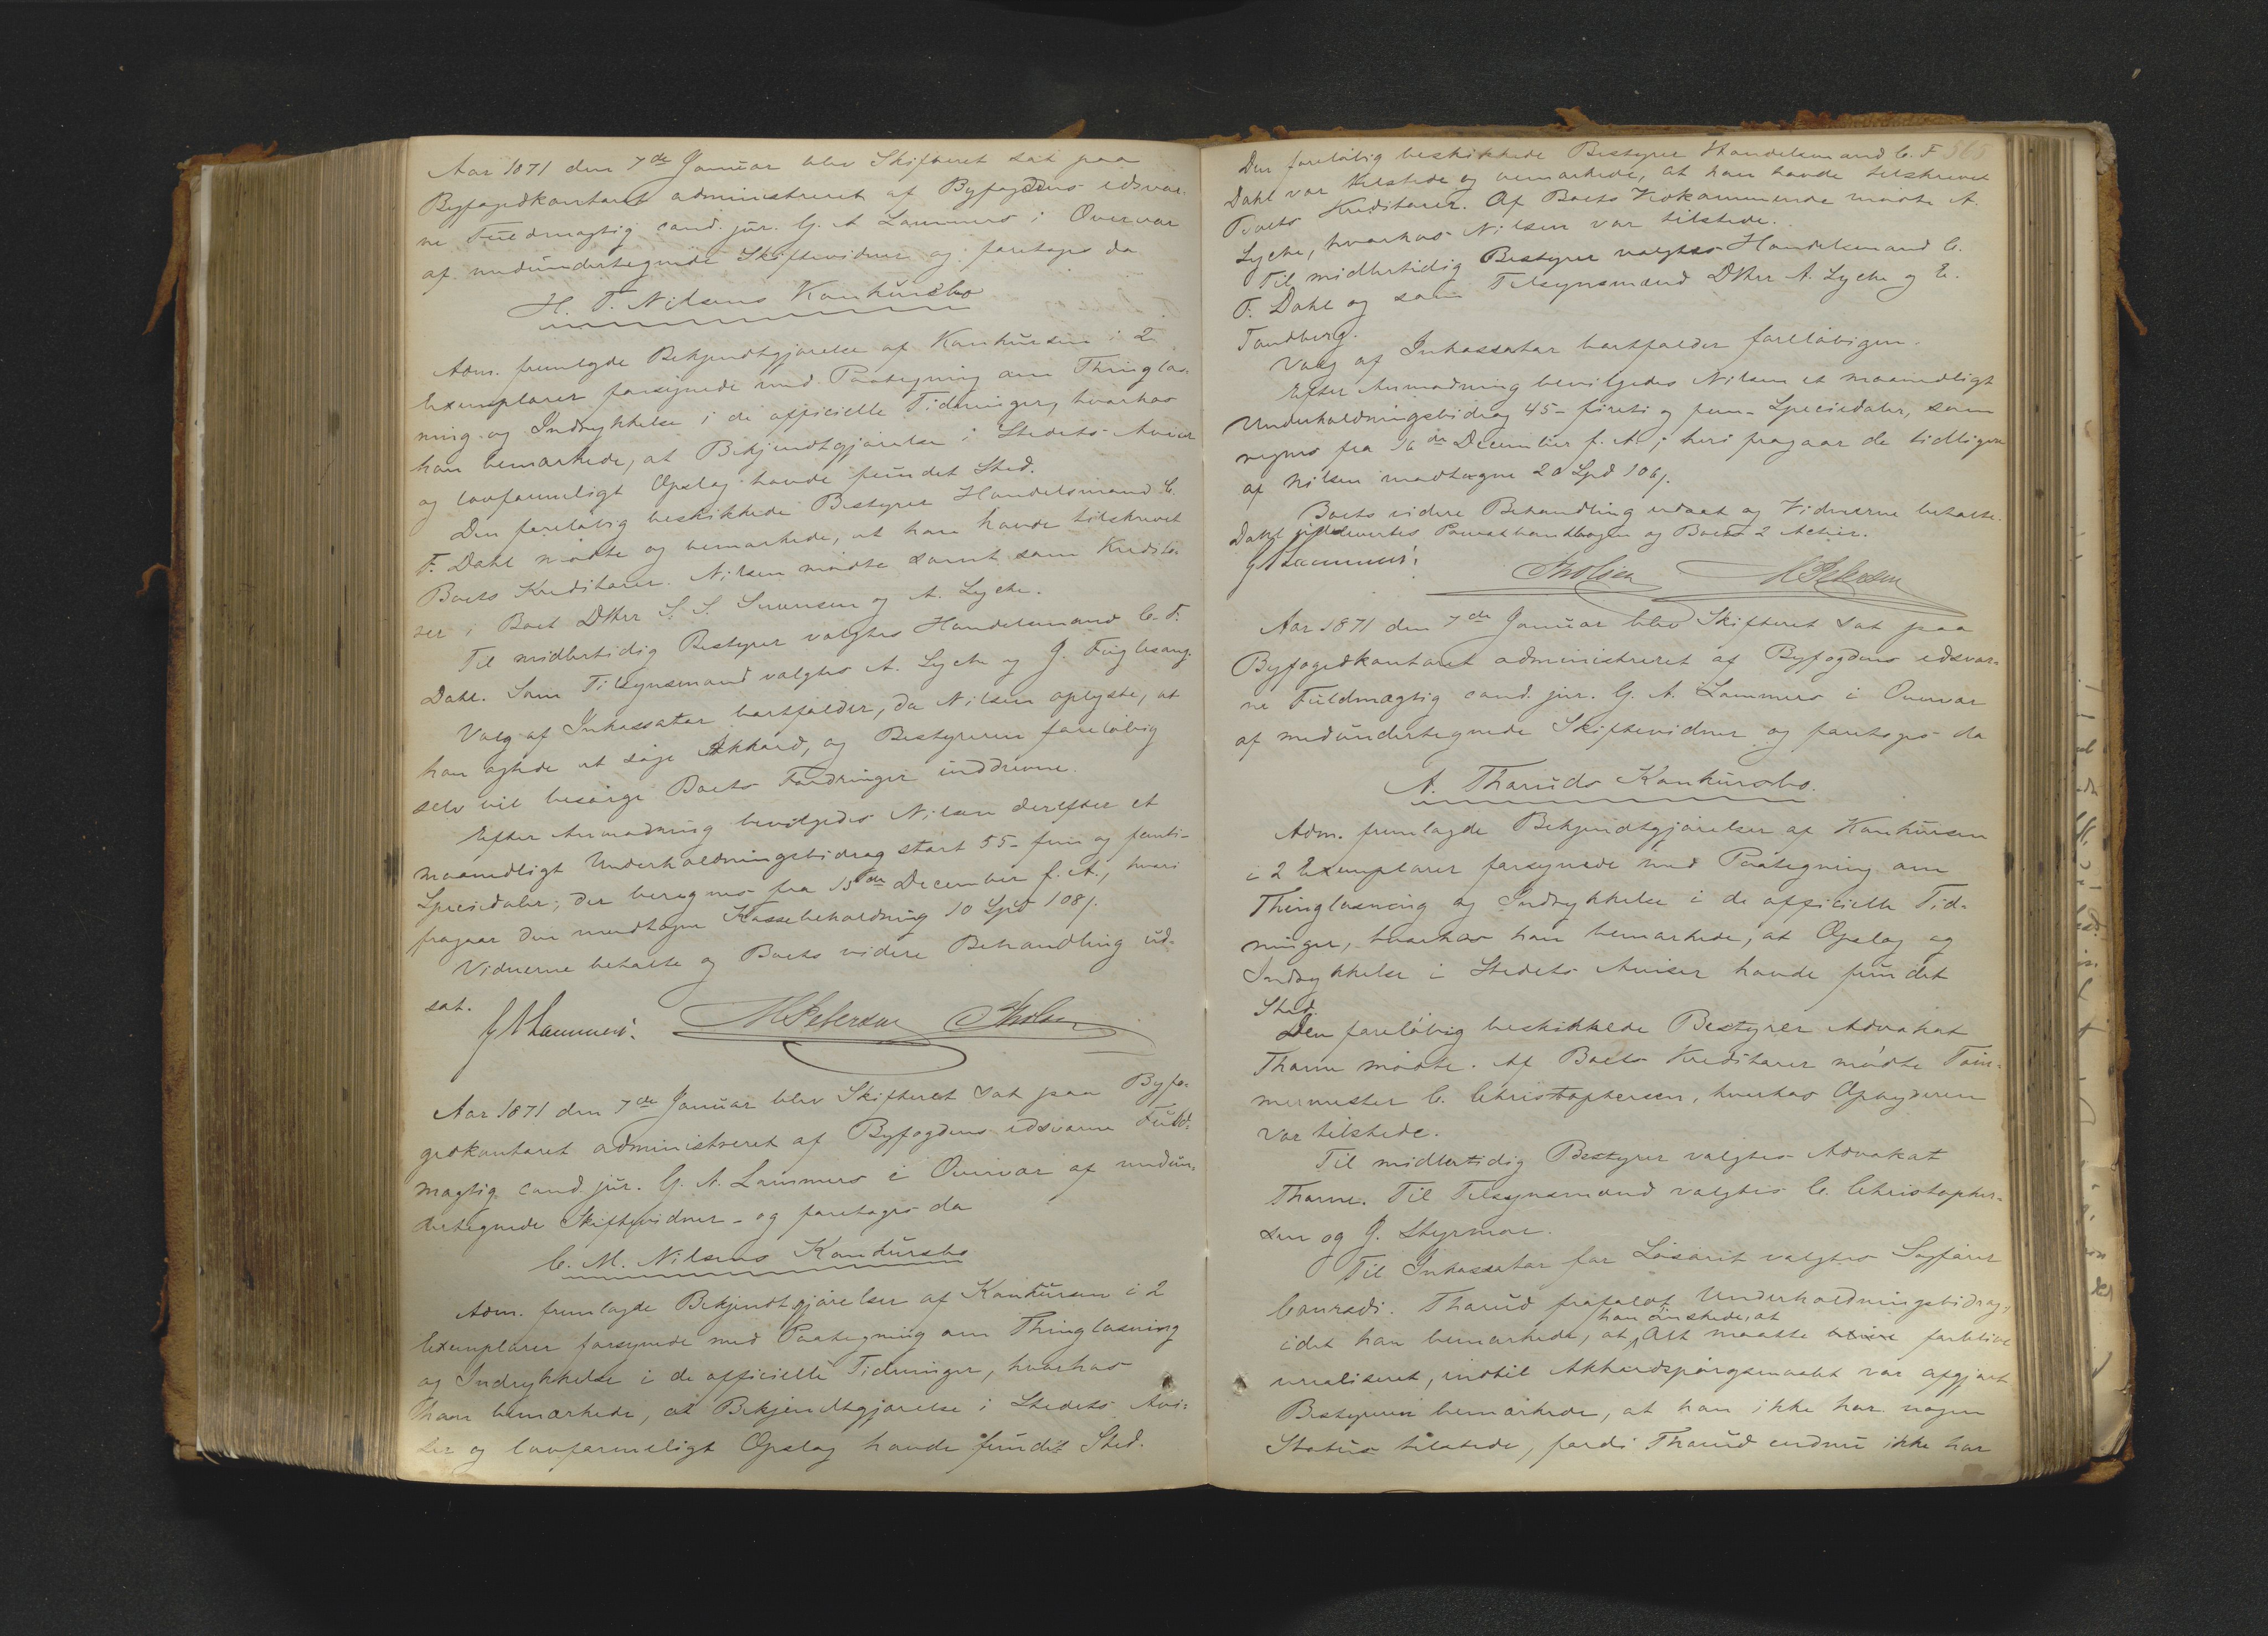 Aar 1871 den 7de Januar blev Skifteret sat paa
Byfogedkontoret administreret af Byfogdens edsvor-
ne Fuldmægtig cand. jur. G. A Lammers i Overvær
af medundertegnede Skiftevidner og foretoges da
H. T. Nilsens Konkursbo
Adm. fremlagde Bekjendtgjørelse af Konkursen i 2
Exemplarer forsynede med Paategning om Thinglæs-
ning og Indrykkelse i de officielle Tidninger, hvorhos
han bemærkede, at Bekjendtgjørelse i Stedets Aviser
og lovformeligt Opslag havde fundet Sted.
Den foreløbig beskikkede Bestyrer Handelsmand C.
F. Dahl mødte og bemærkede, at han havde tilskrevet
Boets Kreditorer. Nilsen mødte samt som Kredito-
rer i Boet DHrr S. S. Svensen og A. Lyche.
Til midlertidig Bestyrer valgtes Handelsmand C. F.
Dahl. Som Tilsynsmænd valgtes A. Lyche og J. Fuglesang.
Valg af Inkassator bortfalder, da Nilsen oplyste, at
han agtede at søge Akkord, og Bestyreren foreløbig
selv vil besørge Boets Fordringer inddrevne.
Efter Anmodning bevilgedes Nilsen derefter et
maanedligt Underholdningsbidrag stort 55- fem og femti-
Speciedaler, der beregnes fra 15de December f. A., hvori
fragaar den modtagne Kassebeholdning 10 Spd 108 s.
Vidnerne betalte og Boets videre Behandling ud-
sat.
G A Lammers. M Petersen Tholsen
Aar 1871 den 7de Januar blev Skifteret sat paa Byfo-
gedkontoret administreret af Byfogdens edsvorne Fuld-
mægtig cand. jur. G. A. Lammers i Overvær af medun-
dertegnede Skiftevidner - og foretoges da
C. M. Nilsens Konkursbo
Adm. fremlagde Bekjendtgjørelser af Konkursen i 2
Exemplarer forsynede med Paategning om Thinglæsning
og Indrykkelse i de officielle Tidninger, hvorhos
han bemærkede, at Bekjendtgjørelse i Stedets Avi-
ser og lovformeligt Opslag havde fundet Sted.
565
Den foreløbig beskikkede Bestyrer Handelsmand C. F
Dahl var tilstede og bemærkede, at han havde tilskrevet
Boets Kreditorer. Af Boets Vedkommende mødte A.
Lyche, hvorhos Nilsen var tilstede.
Til midlertidig Bestyrer valgtes Handelsmand C.
F. Dahl og som Tilsynsmænd DHrr A. Lyche og E.
Tandberg.
Valg af Inkassator bortfalder foreløbigen.
Efter Anmodning bevilgedes Nilsen et maanedligt
Underholdningsbidrag 45- firti og fem- Speciedaler, som
regnes fra 16de December f. A.; heri fragaar de tidligere
af Nilsen modtagne 20 Spd 106 s.
Boets videre Behandling udsat og Vidnerne betalte.
Dahl udleveredes Panteboghandlingen og Boets 2 Actier.
G A Lammers. Tholsen M Petersen
Aar 1871 den 7de Januar blev Skifteret sat paa
Byfogedkontoret administreret af Byfogdens edsvor-
ne Fuldmægtig cand. jur. G. A. Lammers i Overvær
af medundertegnede Skiftevidner og foretoges da
A. Tharuds Konkursbo.
Adm. fremlagde Bekjendtgjørelser af Konkursen
i 2 Exemplarer forsynede med Paategning om
Thinglæsning og Indrykkelse i de officielle Tid-
ninger, hvorhos han bemærkede, at Opslag og
Indrykkelse i Stedets Aviser havde fundet
Sted.
Den foreløbig beskikkede Bestyrer Advokat
Thorne mødte. Af Boets Kreditorer mødte Tøm-
mermester C. Christophersen, hvorhos Opbyderen
var tilstede.
Til midlertidig Bestyrer valgtes Advokat
Thorne. Til Tilsynsmænd valgtes C. Christopher-
sen og J. Styrmoe.
Til Inkassator for Løsørit valgtes Sagfører
Conradi. Tharud frafaldt Underholdningsbidrag,
idet han bemærkede, at han ønskede, at Alt maatte forblive
urealiseret, indtil Akkordspørgsmaalet var afgjort
Bestyreren bemærkede, at han ikke har nogen
Status tilstede, fordi Tharud endnu ikke har